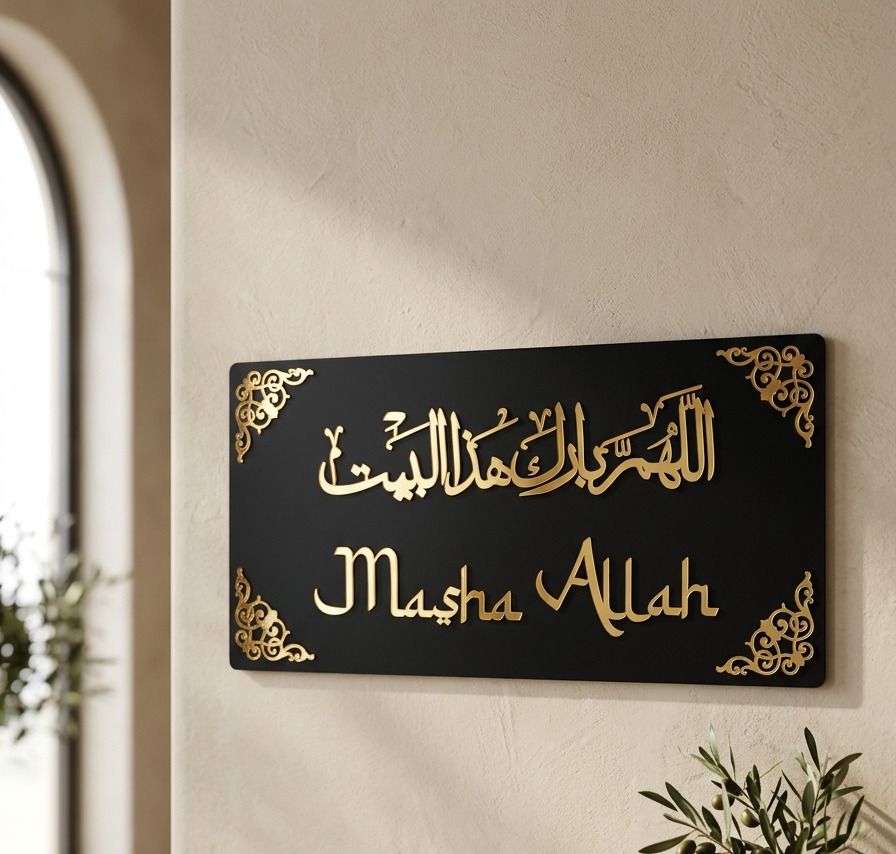 اللّٰهُمَّ بَارِك هَذا البَيت
Masha Allah